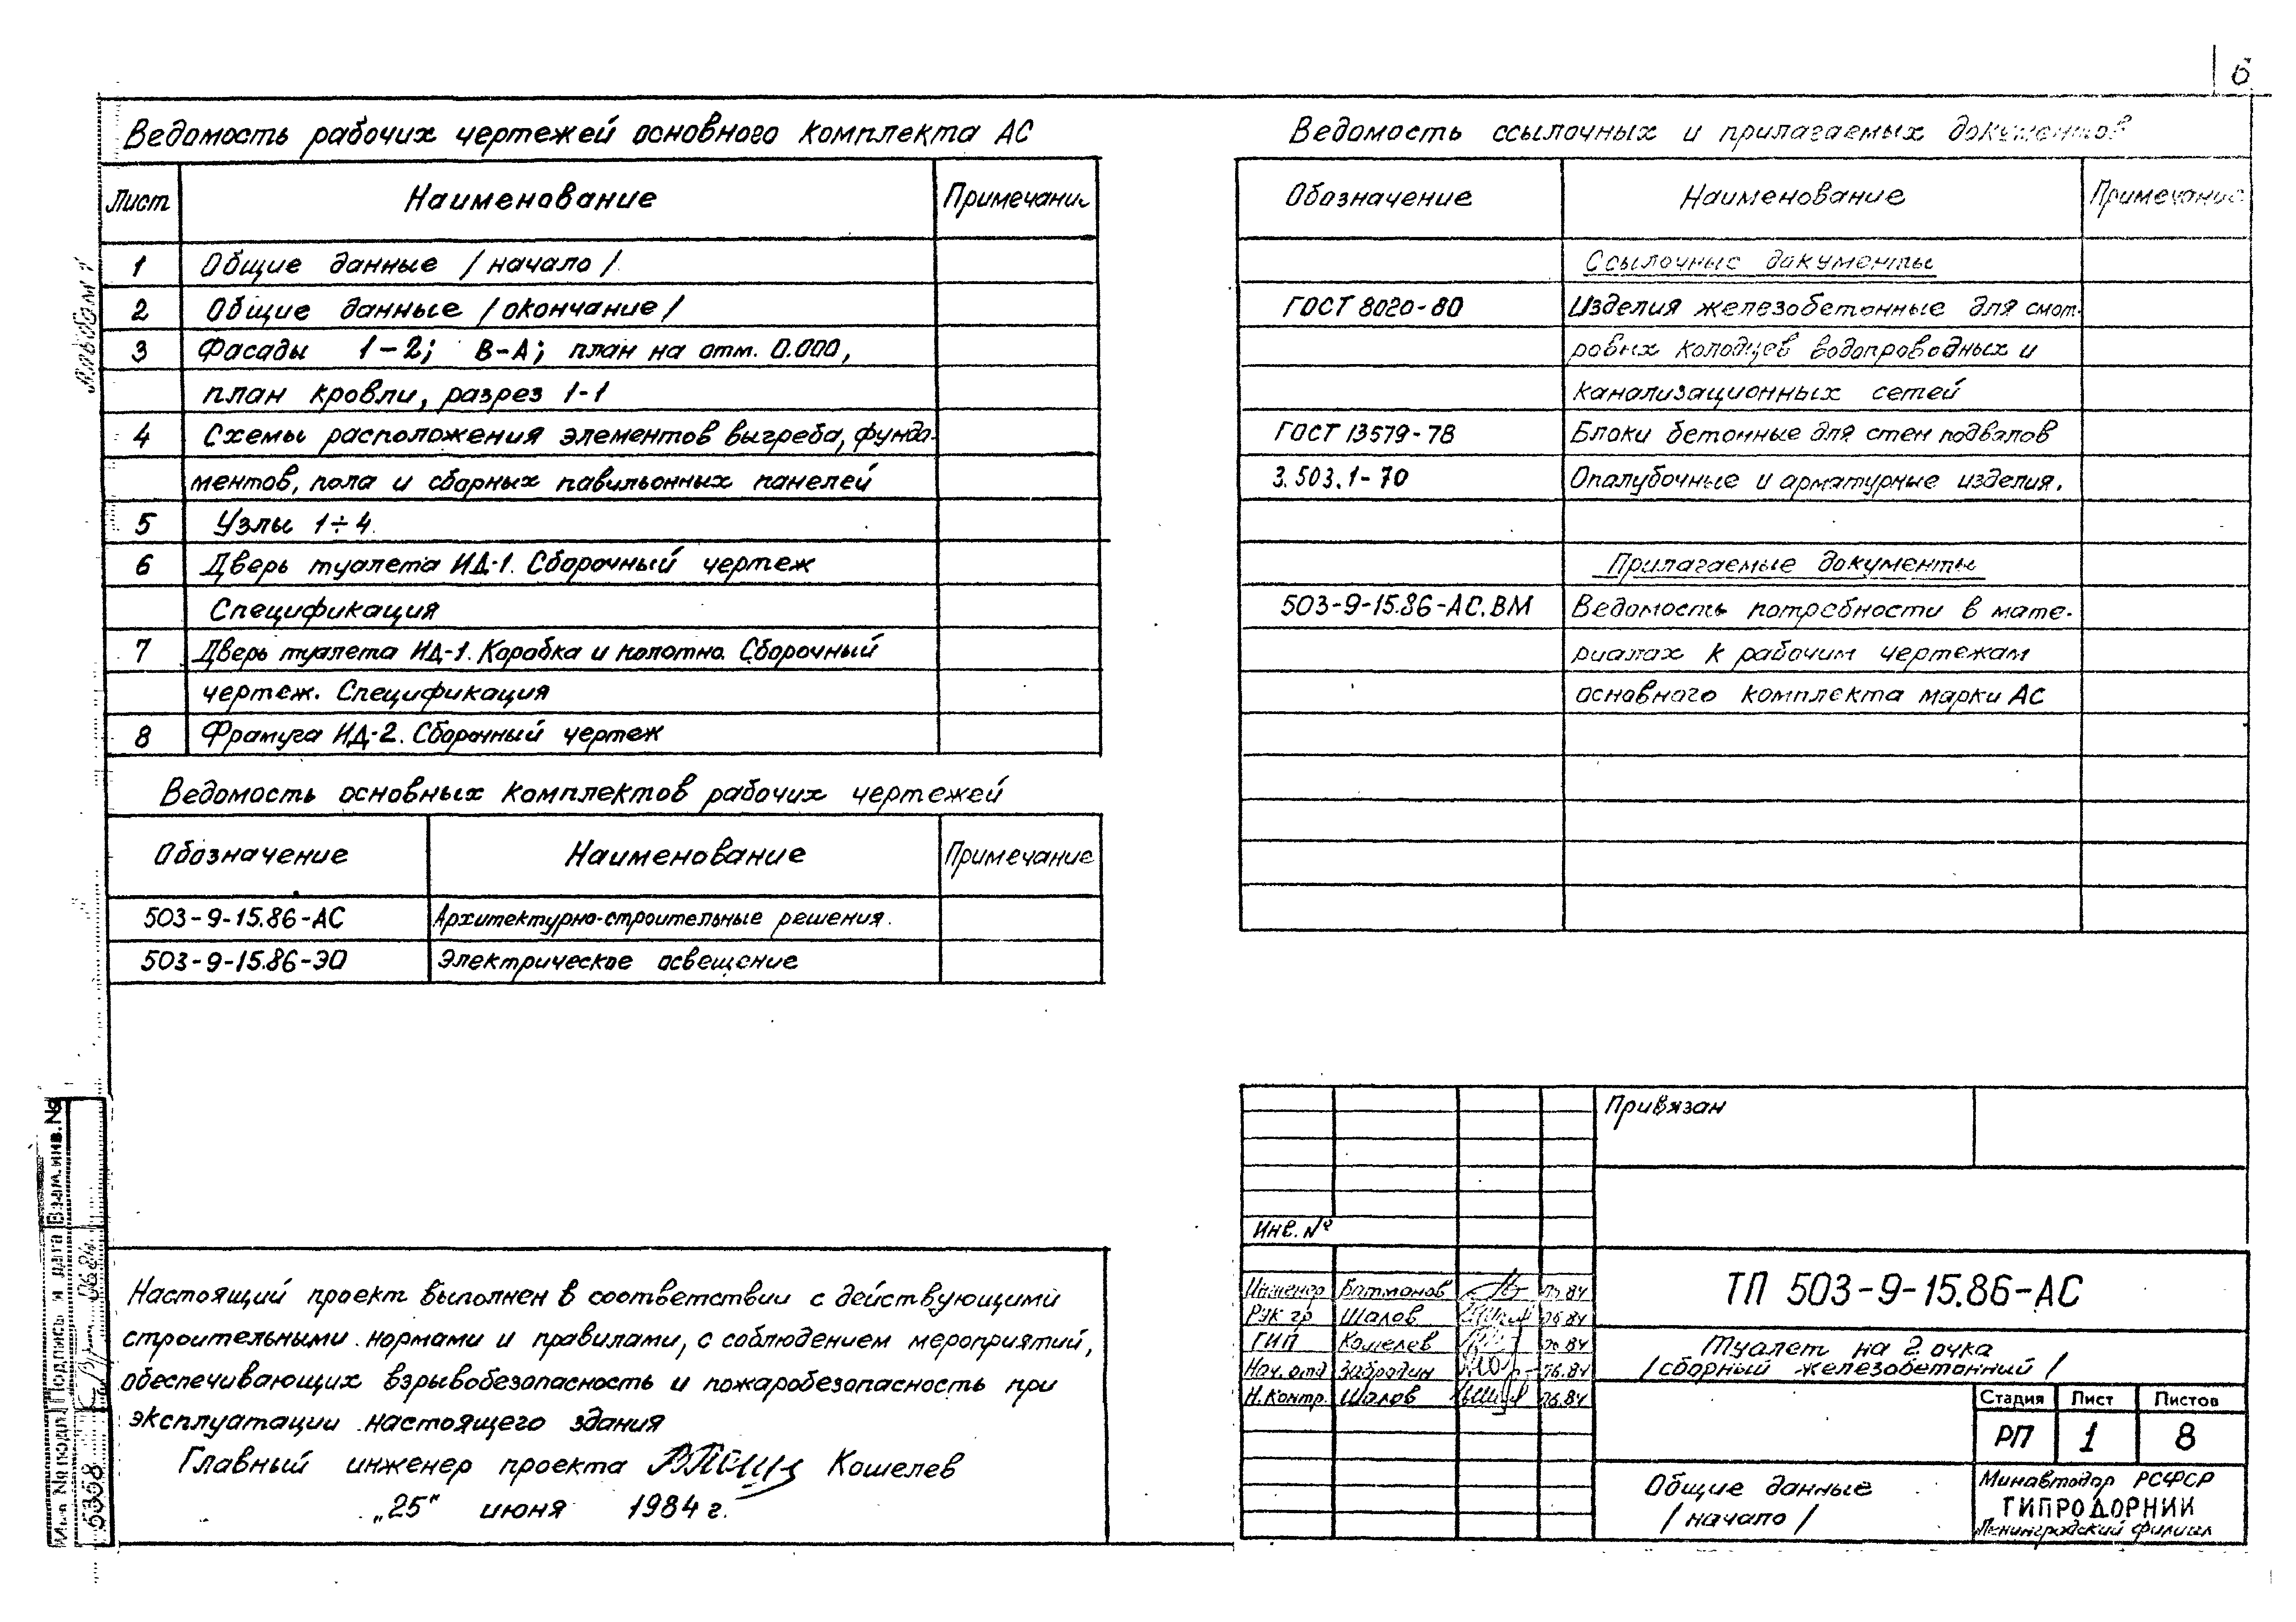 6
Ведомость рабочих чертежей основного комплекта АС
Лист Наименование Примечание
1 Общие данные /начало/
2 Общие данные /окончание/
3 Фасады 1-2; В-А; план на отм. 0.000,
план кровли, разрез 1-1
4 Схемы расположения элементов выгреба, фунда-
ментов, пола и сборных павильонных панелей
5 Узлы 1÷4
6 Дверь туалета ИД-1. Сборочный чертеж
Спецификация
7 Дверь туалета ИД-1. Коробка и полотно. Сборочный
чертеж. Спецификация
8 Фрамуга ИД-2. Сборочный чертеж
Ведомость основных комплектов рабочих чертежей
Обозначение Наименование Примечание
503-9-15.86-АС Архитектурно-строительные решения.
503-9-15.86-ЭО Электрическое освещение
Настоящий проект выполнен в соответствии с действующими
строительными нормами и правилами, с соблюдением мероприятий,
обеспечивающих взрывобезопасность и пожаробезопасность при
эксплуатации настоящего здания
Главный инженер проекта Кошелев
„25" июня 1984 г.
Ведомость ссылочных и прилагаемых документов
Обозначение Наименование Примечание
Ссылочные документы
ГОСТ 8020-80 Изделия железобетонные для смот-
ровых колодцев водопроводных и
канализационных сетей
ГОСТ 13579-78 Блоки бетонные для стен подвалов
3.503.1-70 Опалубочные и арматурные изделия.
Прилагаемые документы
503-9-15.86-АС.ВМ Ведомость потребности в мате-
риалах к рабочим чертежам
основного комплекта марки АС
Привязан
Инв. №
Инженер Батманов
Рук гр Шалов 06.84
ГИП Кошелев 06.84
Нач. отд Забродин 06.84
Н. контр. Шалов 06.84
ТП 503-9-15.86-АС
Туалет на 2 очка
/сборный железобетонный/
Стадия Лист Листов
РП 1 8
Общие данные
/начало/
Минавтодор РСФСР
ГИПРОДОРНИИ
Ленинградский филиал
Альбом I
Взам.инв.№
Подпись и дата
06.84
Инв № подл
5358